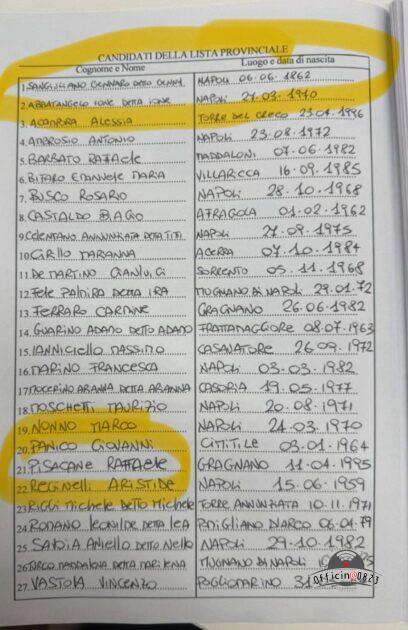 CANDIDATI DELLA LISTA PROVINCIALE
Cognome e Nome Luogo e data di nascita
1. SANGIULIANO GENNARO DETTO GENNY NAPOLI 06.06.1862
2. ABBATANGELO IONE DETTA IONE NAPOLI 27.03.1970
3. ACAMPORA ALESSIA TORRE DEL GRECO 23.04.1996
4. AMBROSIO ANTONIO NAPOLI 23.08.1972
5. BARBATO RAFFAELE MADDALONI 07.06.1982
6. EMANUELE MARIA VILLARICCA 16.09.1985
7. BUSCO ROSARIO NAPOLI 28.10.1968
8. CASTALDO BIAGIO AFRAGOLA 01.02.1962
9. CELENTANO ANNUNZIATA DETTA TITTI NAPOLI 27.09.1975
10. CIRILLO MARIANNA ACERRA 07.10.1984
11. DE MARTINO GIANLUIGI SORRENTO 05.11.1968
12. FELE PALMIRA DETTA IRA MUGNANO DI NAPOLI 29.01.72
13. FERRARO CARMINE GRAGNANO 26.06.1982
14. GUARINO ADAMO DETTO ADAMO FRATTAMAGGIORE 08.07.1963
15. IANNICIELLO MASSIMO CASALNATORE 26.09.1972
16. MARINO FRANCESCA NAPOLI 03.03.1982
17. MOCERINO ARIANNA DETTA ARIANNA CASORIA 19.05.1977
18. MOSCHETTI MAURIZIO NAPOLI 20.08.1971
19. NONNO MARCO NAPOLI 21.03.1970
20. PANICO GIOVANNI CIMITILE 03.01.1964
21. PISACANE RAFFAELE GRAGNANO 11.04.1995
22. REGINELLI ARISTIDE NAPOLI 15.06.1959
23. RIGGI MICHELE DETTO MICHELE TORRE ANNUNZIATA 10.11.1971
24. ROMANO LEONILDE DETTA LEA POMIGLIANO D'ARCO 06.01.79
25. SAVOIA ANIELLO DETTO NELLO NAPOLI 29.10.1982
26. TURCO MADDALENA DETTA MARILENA MUGNANO DI NAPOLI
27. VASTOLA VINCENZO POGGIOMARINO 31
Officin@0823